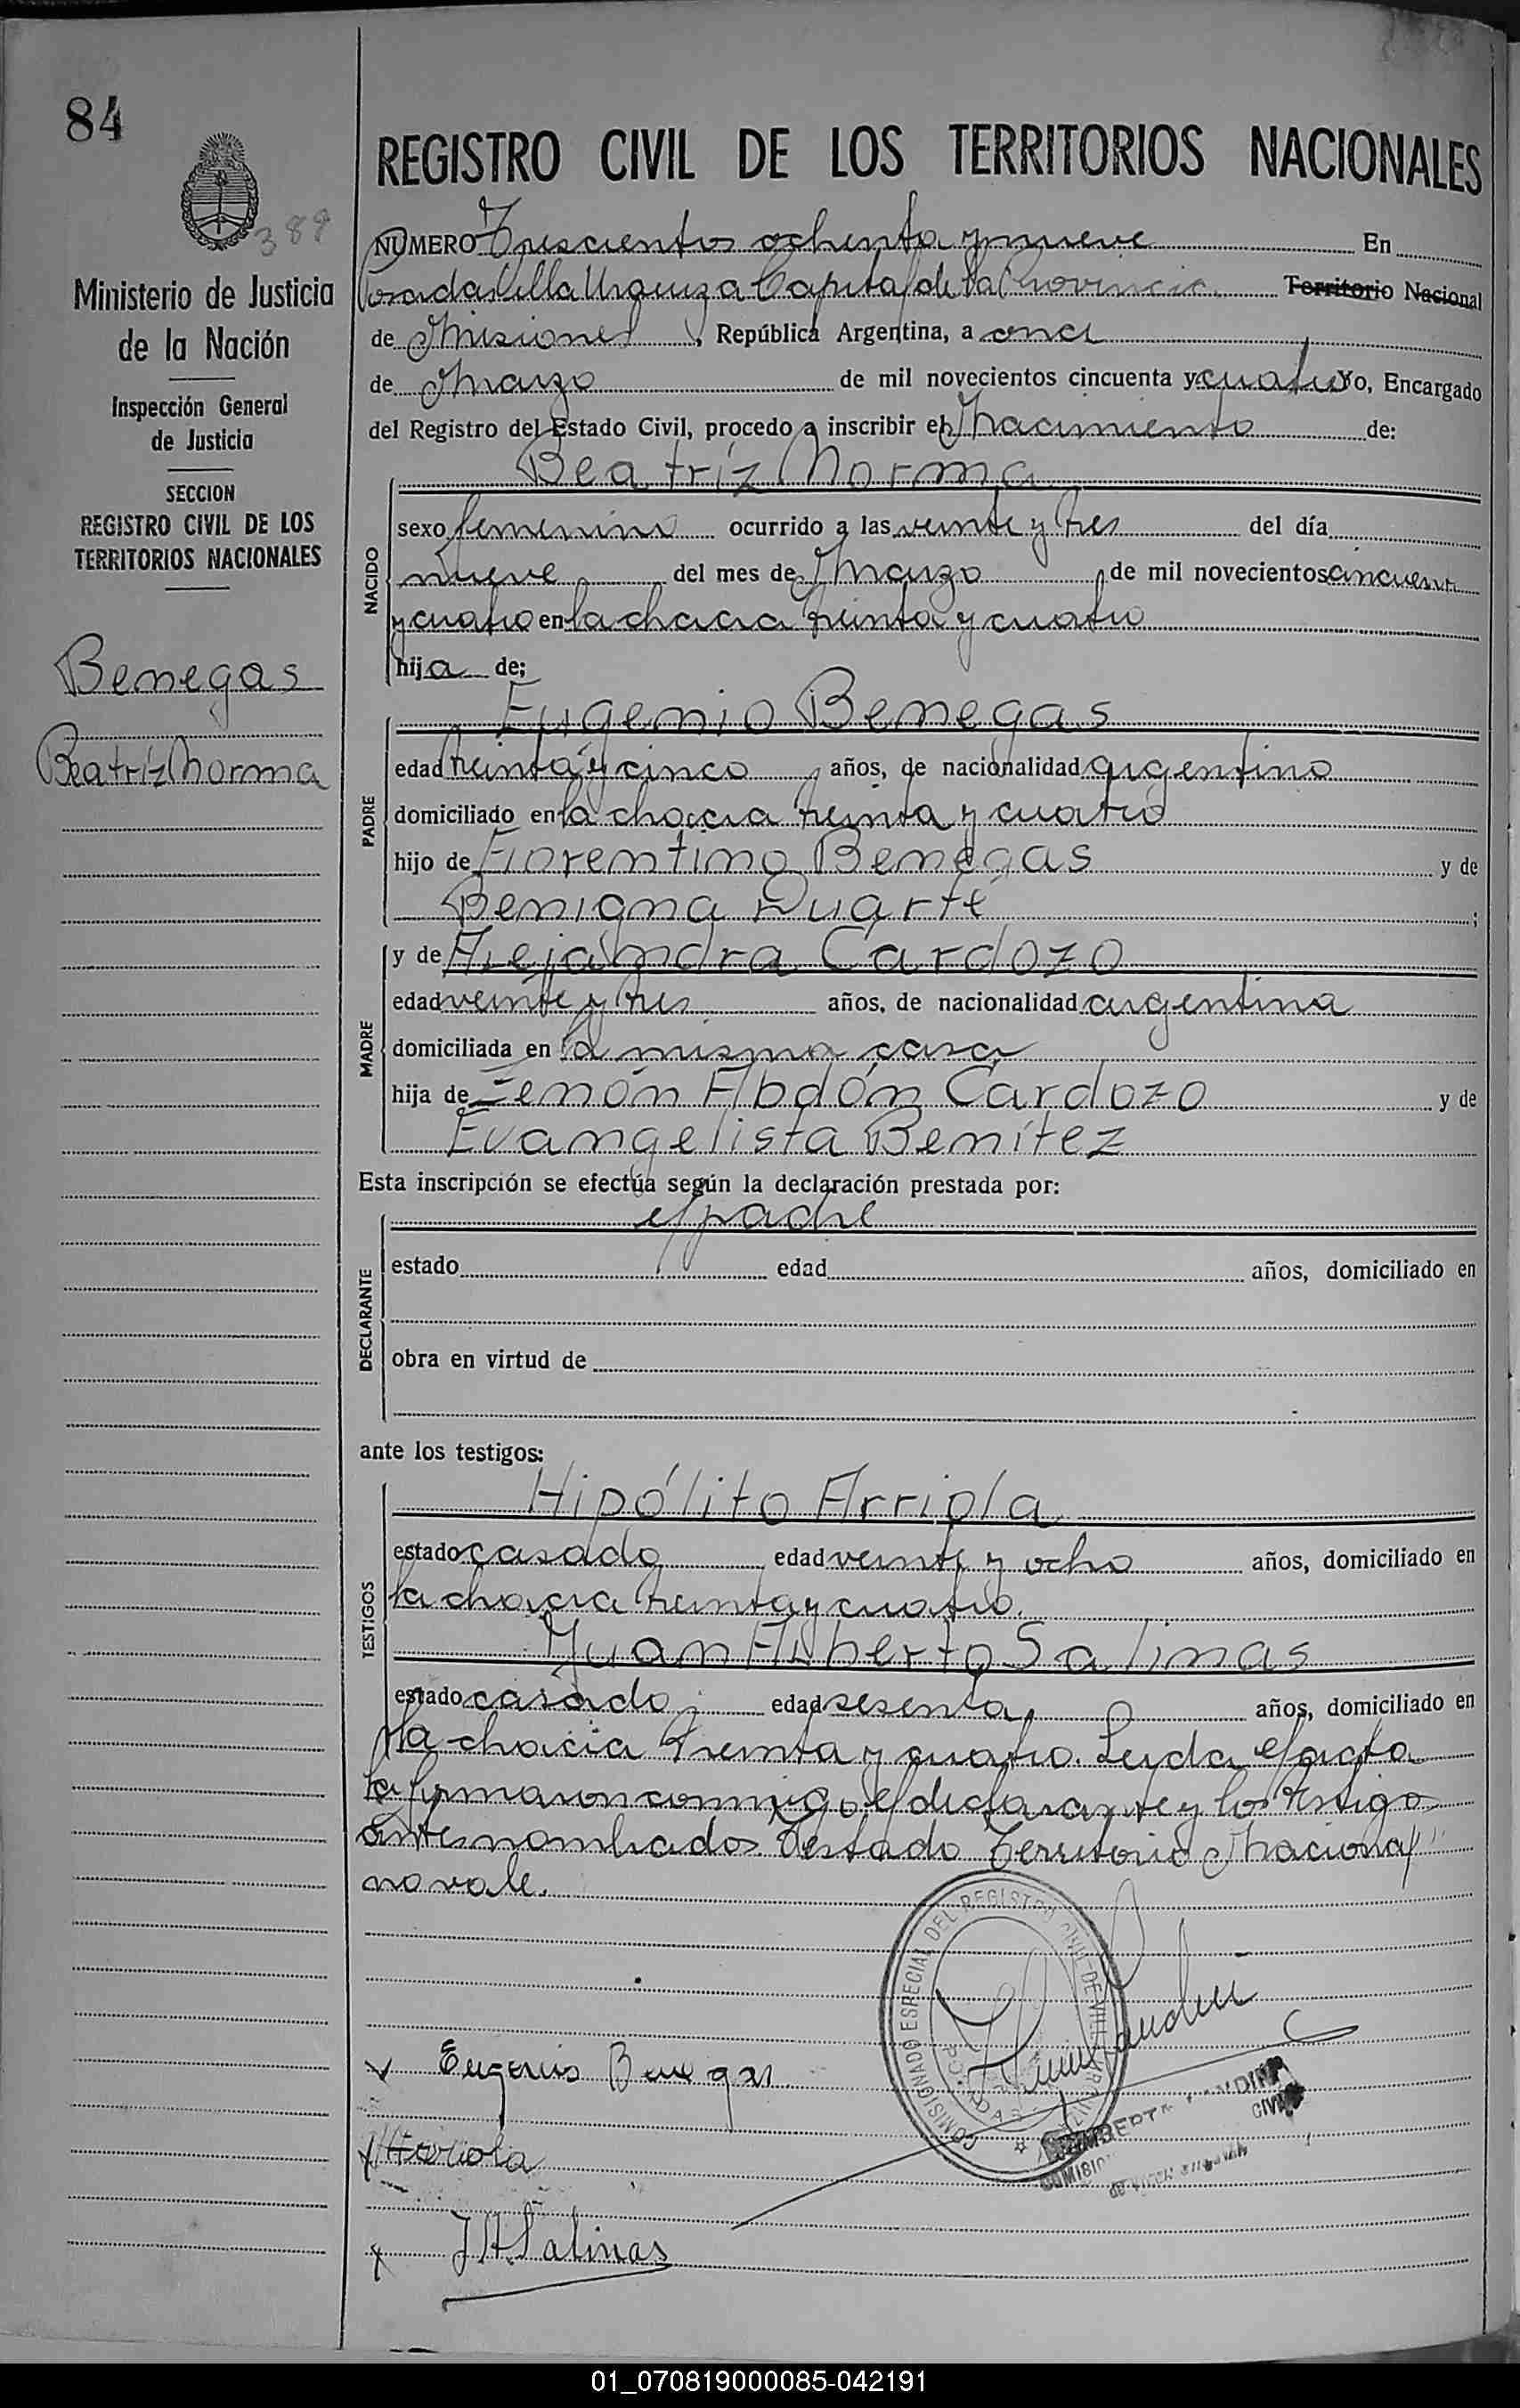 84
389
Ministerio de Justicia
de la Nación
Inspección General
de Justicia
SECCION
REGISTRO CIVIL DE LOS
TERRITORIOS NACIONALES
Benegas
Beatríz Norma
REGISTRO CIVIL DE LOS TERRITORIOS NACIONALES
NUMERO Trescientos ochenta y nueve En
Posadas Villa Urquiza Capital de la Provincia Territorio Nacional
de Misiones, República Argentina, a once
de Marzo de mil novecientos cincuenta y cuatro Yo, Encargado
del Registro del Estado Civil, procedo a inscribir el Nacimiento de:
Beatríz Norma
NACIDO
sexo femenino ocurrido a las veinte y tres del día
nueve del mes de Marzo de mil novecientos cincuenta
y cuatro en la chacra treinta y cuatro
hija de;
Eugenio Benegas
PADRE
edad treinta y cinco años, de nacionalidad argentino
domiciliado en la chacra treinta y cuatro
hijo de Fiorentino Benegas y de
Benigna Duarte ;
y de Alejandra Cardozo
MADRE
edad veinte y tres años, de nacionalidad argentina
domiciliada en la misma casa
hija de Zenón Abdón Cardozo y de
Evangelista Benítez
Esta inscripción se efectúa según la declaración prestada por:
el padre
DECLARANTE
estado edad años, domiciliado en
obra en virtud de
ante los testigos:
Hipólito Arriola
TESTIGOS
estado casado edad veinte y ocho años, domiciliado en
la chacra treinta y cuatro.
Juan Alberto Salinas
estado casado edad sesenta años, domiciliado en
la chacra treinta y cuatro. Leida el acta
la firmaron conmigo, el declarante y los testigos
antes nombrados. Testado Territorio Nacional
no vale.
COMISIGNADO ESPECIAL DEL REGISTRO CIVIL DE VILLA URQUIZA
Eugenio Benegas
HArriola
J A Salinas
01_070819000085-042191